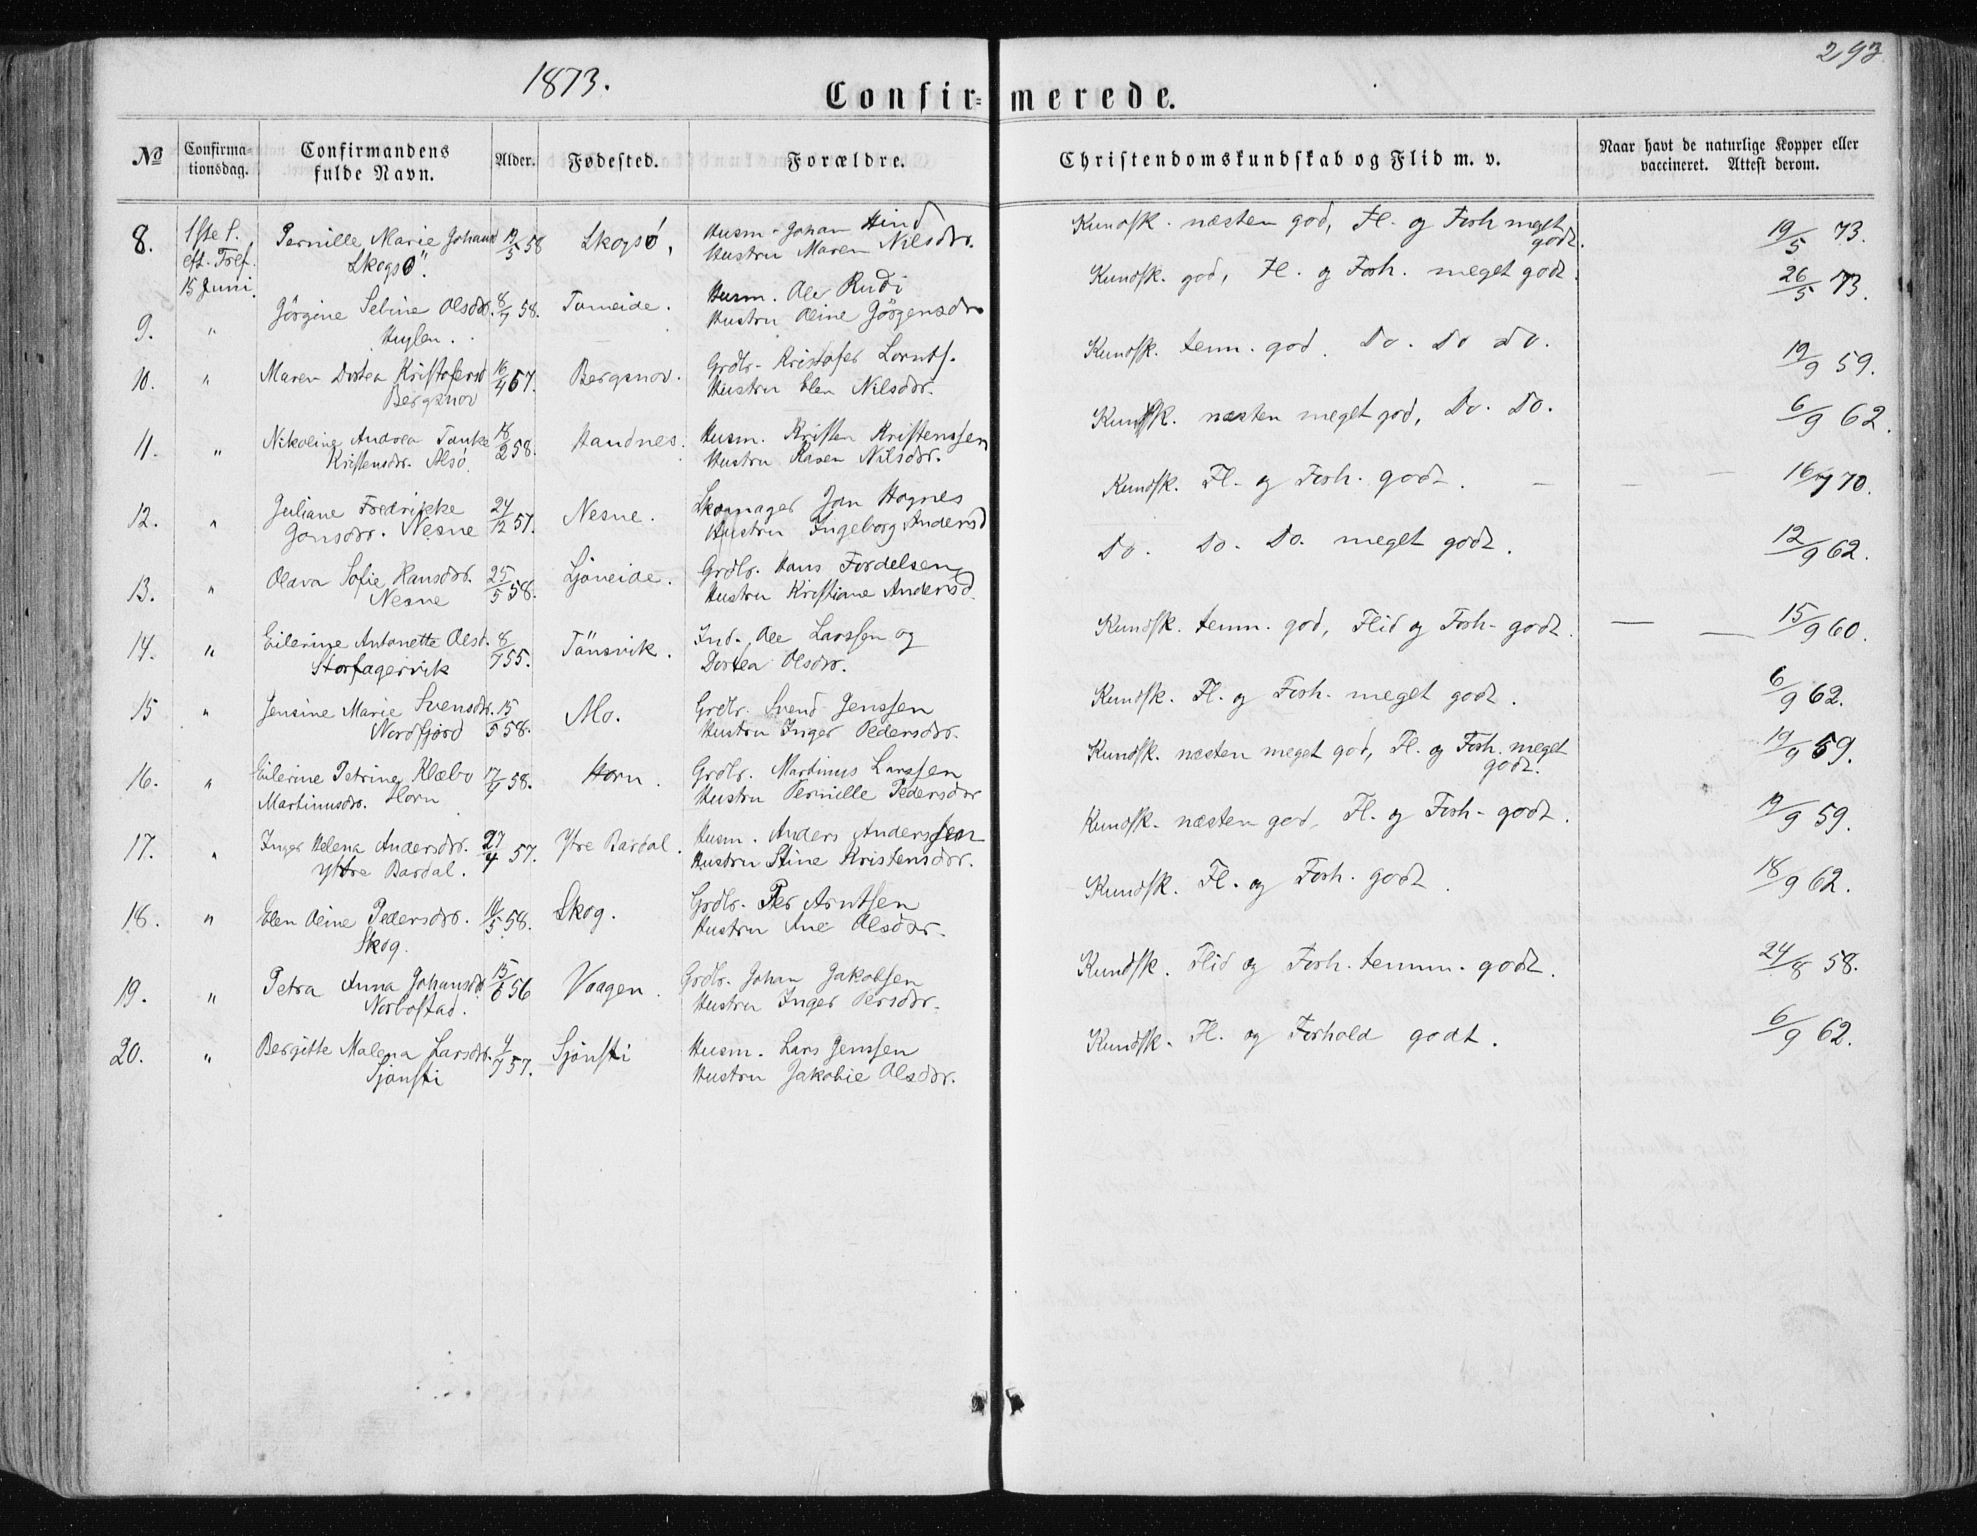 293
1873.
Confir= merede.
No
Confirma-
tionsdag.
Confirmandens
fulde Navn.
Alder.
Fødested.
Forældre.
Christendomskundskab og Flid m. v.
Naar havt de naturlige Kopper eller
vaccineret. Attest derom.
8. 1ste S. Pernille Marie Johans 19/5 58 Skogsö, Husm. Johan Hind Kundsk. næsten god, Fl. og Forh. meget 19/5 73.
eft. Tref. Skogsö. Hustru Maren Nilsdr. godt.
15 Juni.
9. " Jörgine Seline Olsdr. 8/7 58. Tomeide. Husm. Ole Rudi Kundsk. god, Fl. og Forh. meget godt. 26/5 73.
Huglen. Hustru Oline Jörgensdr
10. " Maren Dortea Kristofersd 16/4 57. Bergsnov. Grdbr. Kristofer Lornts. Kundsk. temm. god. Do. Do Do. 19/9 59.
Bergsnov Hustru Elen Nilsdr.
11. " Nikoline Andrea Tanke 18/2 58. Handnes. Husm. Kristen Kristenssen Kundsk. næsten meget god, Do. Do. 6/9 62.
Kristensdr. Alsö. Hustru Karen Nilsdr.
12. " Juliane Fredrikke 24/12 57. Nesne. Skomager Jan Hognes Kundsk. Fl. og Forh. godt. 16/7 70.
Jonsdr. Nesne Hustru Ingeborg Andersd
13. " Olava Sofie Hansdr. 25/5 58. Ljöneide. Grdbr. Hans Fordelsen Do. Do. Do. meget godt. 12/9 62.
Nesne Hustru Kristiane Andersd.
14. " Eilerine Antonette Olsd. 8/7 55. Tänsvik. Ind. Ole Larssen og Kundsk. temm. god, Flid og Forh. godt. 15/9 60.
Storfagervik Dortea Olsdr.
15 " Jensine Marie Svensdr. 15/5 58. Mo. Grdbr. Svend Jenssen Kundsk. Fl. og Forh. meget godt. 6/9 62.
Nordfjord Hustru Inger Pedersdr.
16. " Eilerine Petrine Klæbo 17/4 58. Horn. Grdbr. Martinus Larssen Kundsk. næsten meget god, Fl. og Forh. meget 19/9 59.
Martinusdr. Horn Hustru Pernille Pedersdr godt.
17. " Inger Helena Andersdr. 27/4 57. Ytre Bardal. Husm. Anders Anderssen Kundsk. næsten god, Fl. og Forh. godt. 19/9 59.
Yttre Bardal. Hustru Stine Kristensdr.
18. " Elen Oline Pedersdr. 11/5 58. Skog. Grdbr. Per Arntsen Kundsk. Fl. og Forh. godt. 18/9 62.
Skog. Hustru Ane Olsdr.
19. " Petra Anna Johansdr 15/6 56 Vaagen. Grdbr. Johan Jakobsen Kundsk. Flid og Forh. temm. godt. 24/8 58.
Norbostad. Hustru Inger Persdr.
20. " Bergitte Malena Larsdr. 4/7 57. Sjönsti Husm. Lars Jenssen Kundsk. Fl. og Forhold godt. 6/9 62.
Sjönsti Hustru Jakobie Olsdr.